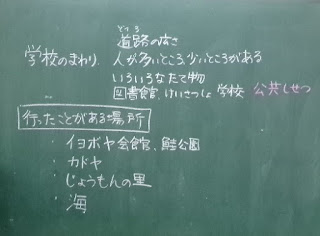 どうろ
道路の広さ
学校のまわり 人が多いところ、少いところがある
いろいろなたて物
図書館、けいさつしょ 学校 公共しせつ
行ったことがある場所
・イヨボヤ会館、鮭公園
・カドヤ
・じょうもんの里
・海